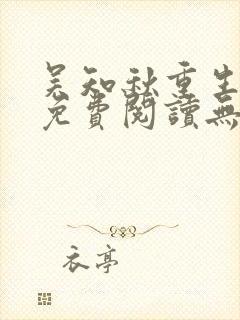 吴知秋重生
免費閱讀無
衣亭